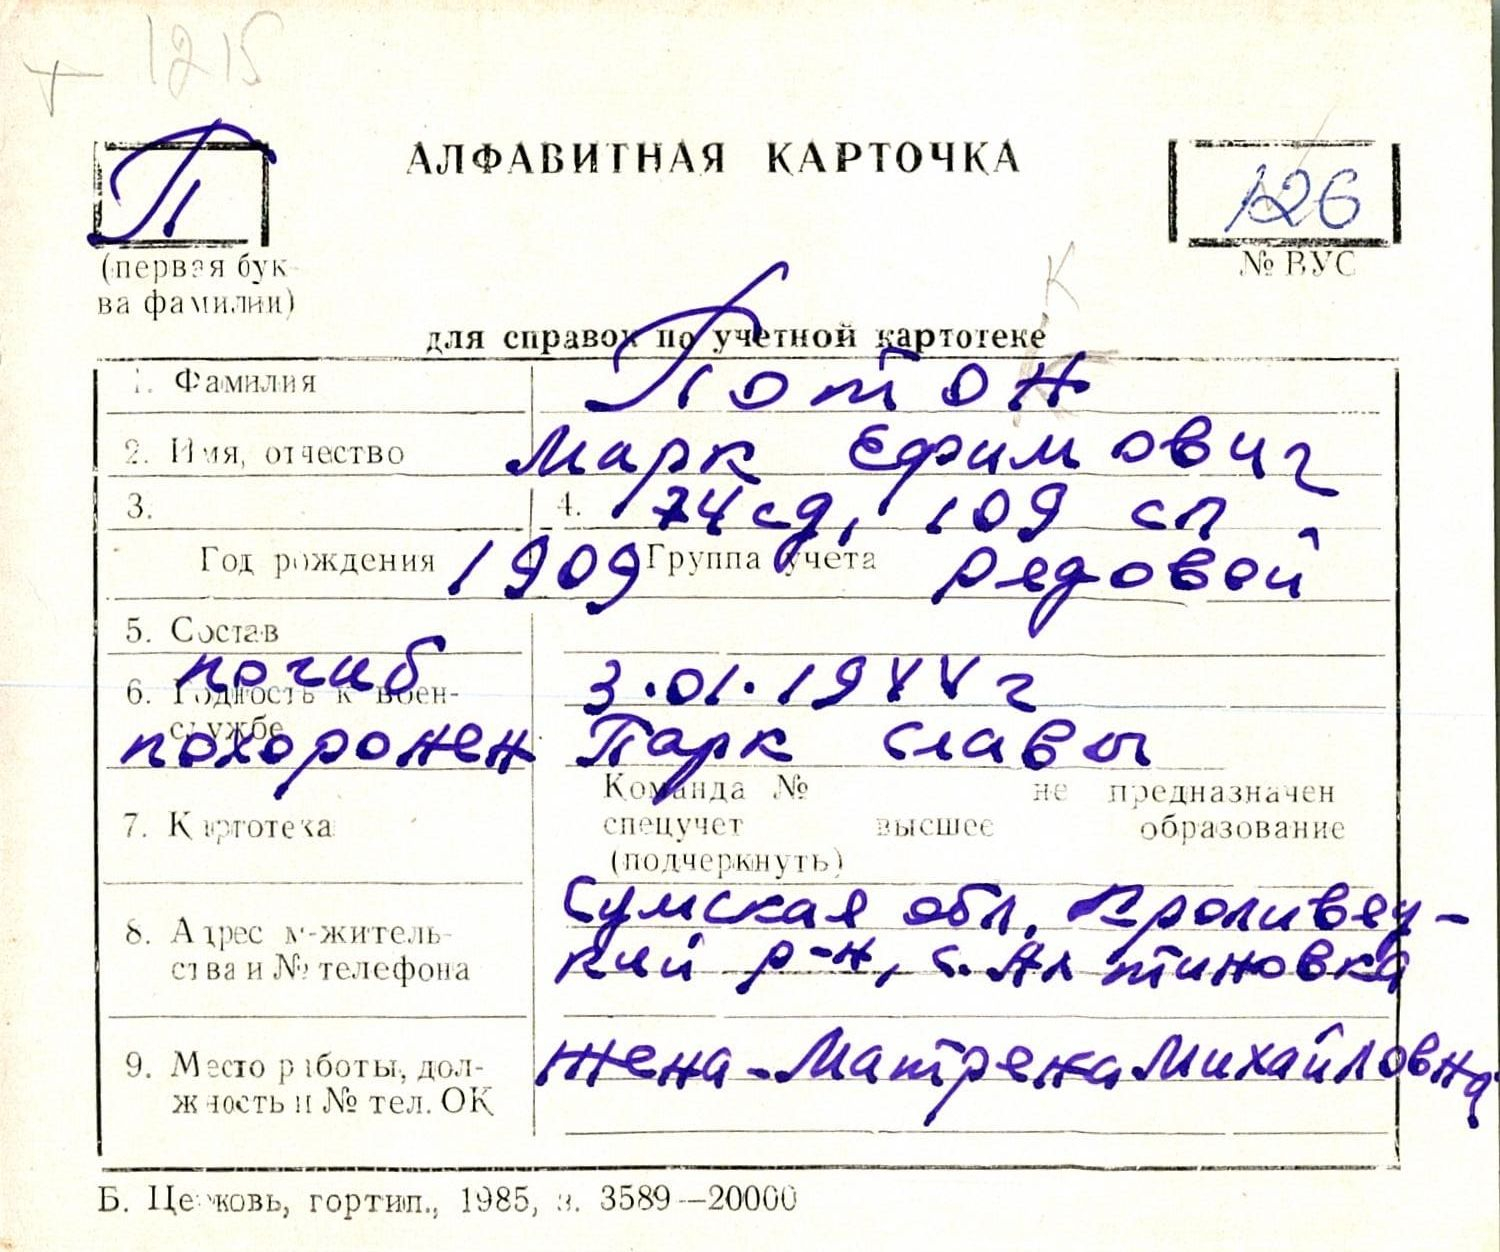 1215
П
АЛФАВИТНАЯ КАРТОЧКА
126
(первая бук-
ва фамилии)
№ ВУС
К
для справок по учетной картотеке
1. Фамилия Потон
2. Имя, отчество Марк Ефимович
3. 4. 74 сд, 109 сп
Год рождения 1909 Группа учета рядовой
5. Состав
погиб 3.01.1944 г
6. Годность к воен-
службе
похоронен Парк Славы
Команда № не предназначен
7. Картотека спецучет высшее образование
(подчеркнуть)
8. Адрес м-житель-
ства и № телефона
Сумская обл, Кролевец-
кий р-н, с. Алтиновка
9. Место работы, дол-
жность и № тел. ОК
жена - Матрена Михайловна
Б. Церковь, гортип., 1985, з. 3589—20000